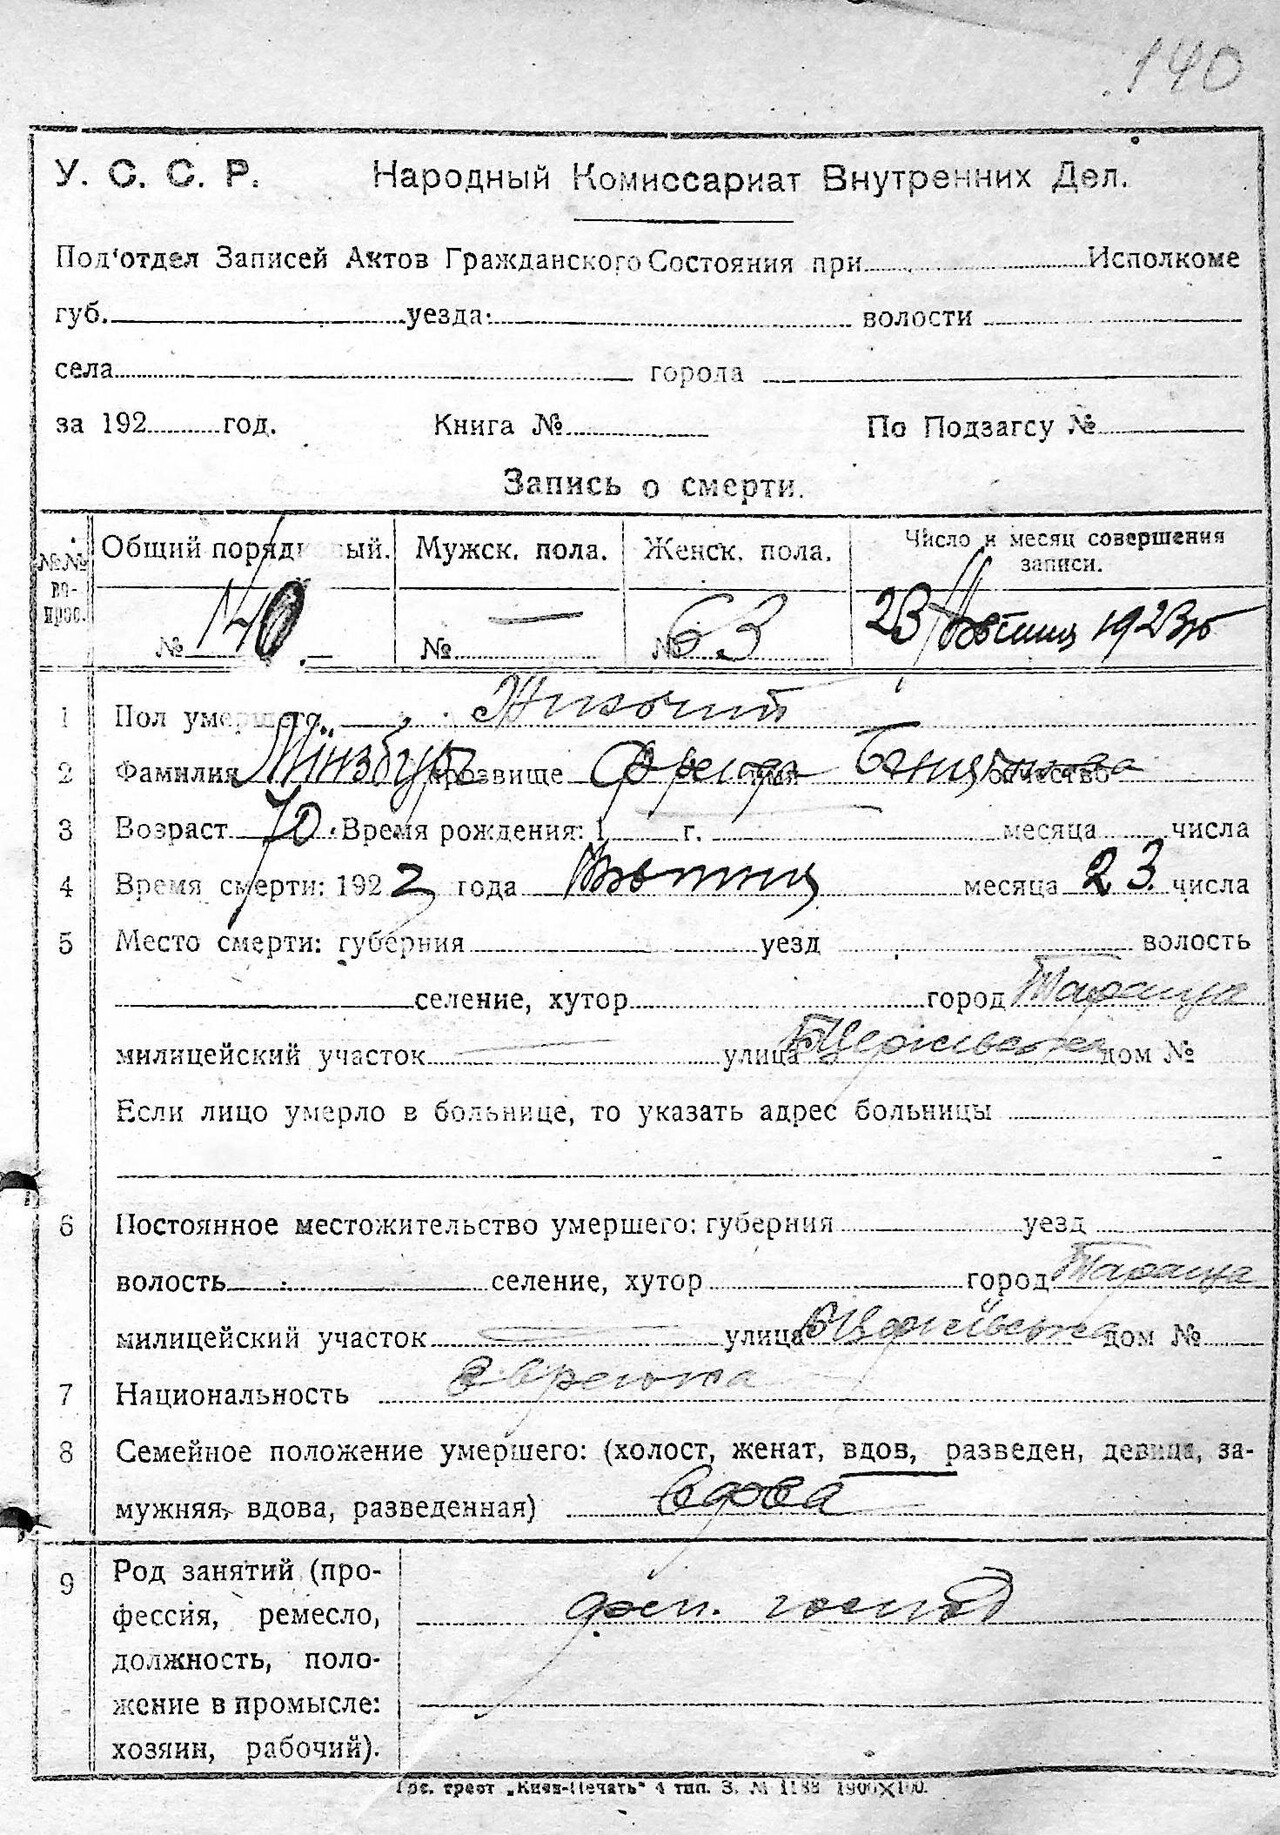 140
У. С. С. Р. Народный Комиссариат Внутренних Дел.
Под'отдел Записей Актов Гражданского Состояния при Исполкоме
губ. уезда волости
села города
за 192 год. Книга № По Подзагсу №
Запись о смерти.
№№ вопрос. Общий порядковый. Мужск. пола. Женск. пола. Число и месяц совершения записи.
№ 140. № — № 63 23 1923
1 Пол умершего Жіночий
2 Фамилия Гінзбург прозвище Фрейда имя отчество
3 Возраст 70. Время рождения: 1 г. месяца числа
4 Время смерти: 1923 года месяца 23 числа
5 Место смерти: губерния уезд волость
селение, хутор город Тараща
милицейский участок — улица БЦерківська дом №
Если лицо умерло в больнице, то указать адрес больницы
6 Постоянное местожительство умершего: губерния уезд
волость селение, хутор город Тараща
милицейский участок — улица БЦерківська дом №
7 Национальность Єврейка
8 Семейное положение умершего: (холост, женат, вдов, разведен, девица, за-
мужняя, вдова, разведенная) вдова
9 Род занятий (про-
фессия, ремесло,
должность, поло-
жение в промысле:
хозяин, рабочий).
Гос. трест „Киев-Печать" 4 тип. З. № 1188 1900×100.